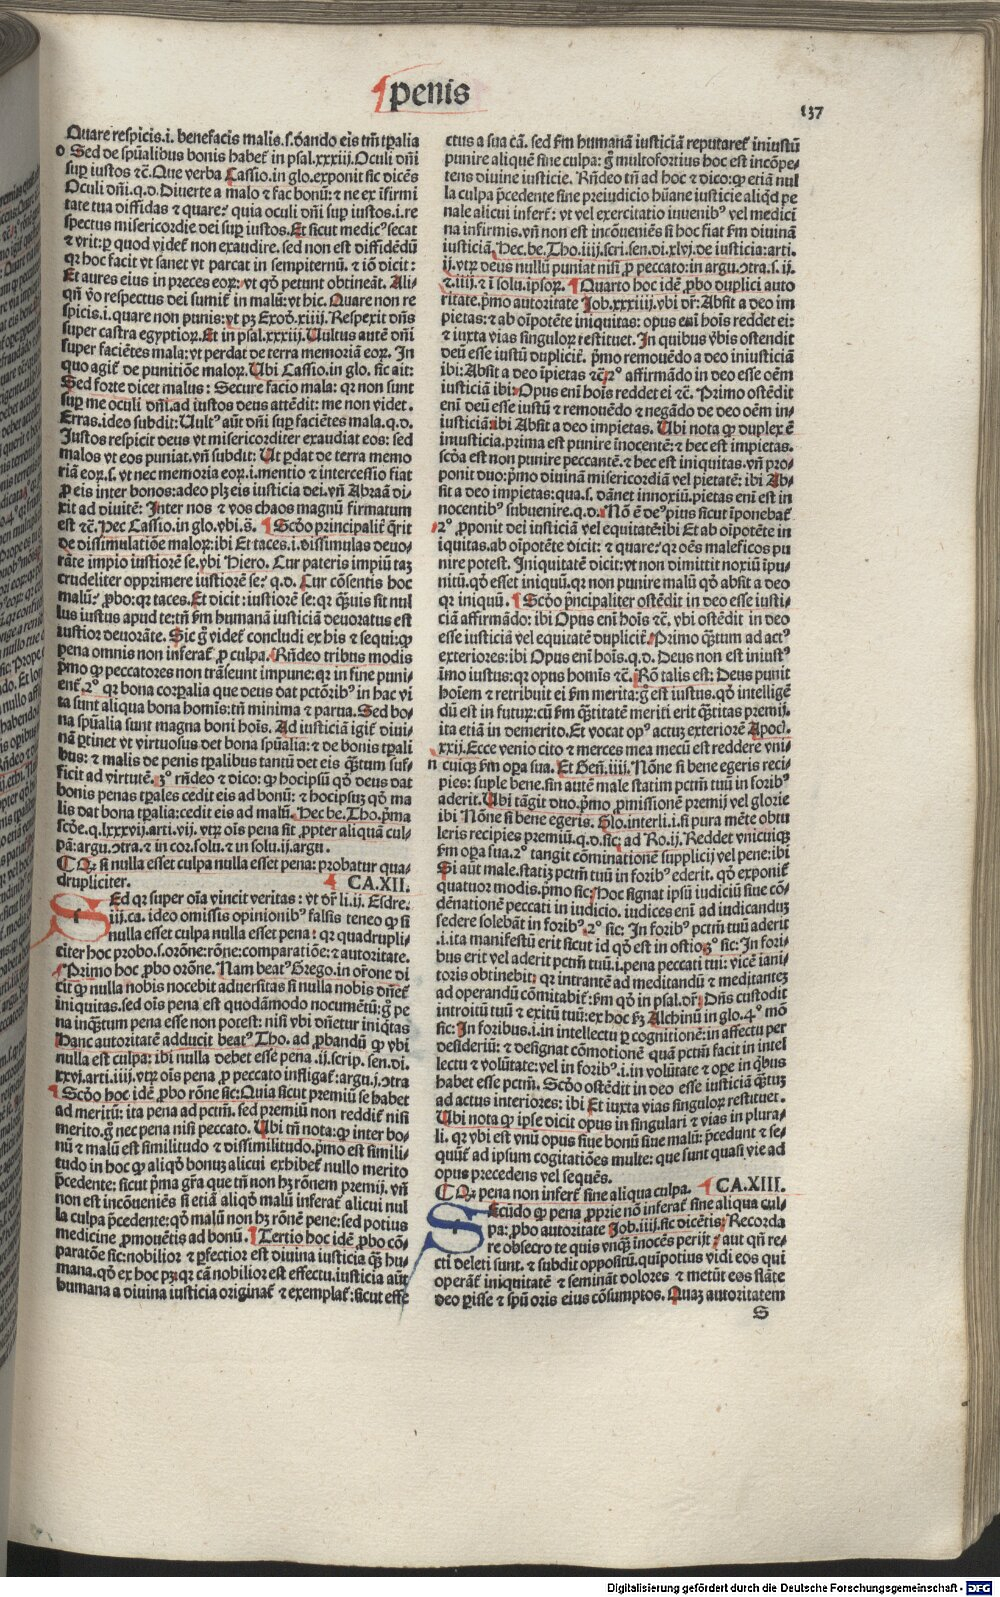 ¶penis
137
Quare respicis.i. benefacis malis.s.dando eis tm̄ tp̄alia
o Sed de spūalibus bonis habet̄ in psal.xxxiij.Oculi dn̄i
sup iustos ⁊c̄.Que verba Cassio.in glo.exponit sic dicēs
Oculi dn̄i.q.d.Diuerte a malo ⁊ fac bonū: ⁊ ne ex īfirmi
tate tua diffidas ⁊ quare? quia oculi dn̄i sup iustos.i.re
spectus misericordie dei sup iustos.Et sicut medicꝰ secat
⁊ vrit: ꝑ quod videt̄ non exaudire. sed non est diffidēdū
qꝛ hoc facit vt sanet vt parcat in sempiternū. ⁊ iō dicit:
Et aures eius in preces eoꝝ: vt qd̄ petunt obtineāt. Ali-
qn̄ v̄o respectus dei sumit̄ in malū: vt hic. Quare non re
spicis.i.quare non punis: vt pꝫ Exod.xiiij. Respexit dn̄s
super castra egyptioꝝ.Et in psal.xxxiij.Uultus autē dn̄i
super faciētes mala: vt perdat de terra memoriā eoꝝ. In
quo agit̄ de punitiōe maloꝝ.Ubi Cassio.in glo. sic ait:
Sed forte dicet malus: Secure facio mala: qꝛ non sunt
sup me oculi dn̄i.ad iustos deus attēdit: me non videt.
Erras.ideo subdit: Uultꝰ aūt dn̄i sup faciētes mala.q.d.
Iustos respicit deus vt misericorditer exaudiat eos: sed
malos vt eos puniat.vn̄ subdit: Ut ꝑdat de terra memo
riā eoꝝ.s. vt nec memoria eoꝝ.i.mentio ⁊ intercessio fiat
ꝓ eis inter bonos: adeo plꝫ eis iusticia dei. vn̄ Abraā di-
xit ad diuitē: Inter nos ⁊ vos chaos magnū firmatum
est ⁊c̄. Hec Cassio.in glo.vbi.s̄. ¶ Scd̄o principalit̄ q̄rit
de dissimulatiōe maloꝝ: ibi Et taces.i.dissimulas deuo-
rāte impio iustiorē se. vbi Hiero. Cur pateris impiū taꝫ
crudeliter opprimere iustiorē se? q.d. Cur cōsentis hoc
malū? ꝓbo: qꝛ taces.Et dicit: iustiorē se: qꝛ q̄uis sit nul
lus iustus apud te: tn̄ ẜm humanā iusticiā deuoratus est
iustior deuorāte. Sic g̊ videt̄ concludi ex his ⁊ sequi: ꝙ
pena omnis non inferat̄ ꝓ culpa. Rn̄deo tribus modis
p̄mo ꝙ peccatores non trāseunt impune: qꝛ in fine puni-
ent̄. 2º qꝛ bona corꝑalia que deus dat pctōribꝰ in hac vi
ta sunt aliqua bona homīs: tn̄ minima ⁊ parua. Sed bo-
na spūalia sunt magna boni hoīs. Ad iusticiā igit̄ diui-
nā ꝑtinet vt virtuosus det bona spūalia: ⁊ de bonis tp̄ali
bus: ⁊ malis de penis tp̄alibus tantū det eis q̄ntum suf-
ficit ad virtutē. 3º rn̄deo ⁊ dico: ꝙ hocipsū qd̄ deus dat
bonis penas tp̄ales cedit eis ad bonū: ⁊ hocipsuꝫ qd̄ ma
lis dat bona tp̄alia: cedit eis ad malū. Hec be.Tho.p̄ma
scd̄e.q.lxxxvij.arti.vij. vtꝝ oīs pena sit ꝓpter aliquā cul-
pā: argu.ↄtra.⁊ in cor.solu.⁊ in solu.ij.argu.
¶ Qꝫ si nulla esset culpa nulla esset pena: probatur qua-
drupliciter. ¶ CA.XII.
Sed qꝛ super oīa vincit veritas: vt dr̄ li.ij. Esdre.
iij.ca. ideo omissis opinionibꝰ falsis teneo ꝙ si
nulla esset culpa nulla esset pena: qꝛ quadrupli-
citer hoc probo.s.orōne: rōne: comparatiōe: ⁊ autoritate.
¶ Primo hoc ꝓbo orōne. Nam beatꝰ Grego.in orōne di
cit ꝙ nulla nobis nocebit aduersitas si nulla nobis dn̄et̄
iniquitas.sed oīs pena est quodāmodo nocumētū: g̊ pe
na inq̄ntum pena esse non potest: nisi vbi dn̄etur iniq̄tas
Hanc autoritatē adducit beatꝰ Tho. ad ꝓbandū ꝙ vbi
nulla est culpa: ibi nulla debet esse pena .ij.scrip.sen.di.
xxvj.arti.iiij.vtꝝ oīs pena ꝓ peccato infligat̄: argu.j.ↄtra
¶ Scd̄o hoc idē ꝓbo rōne sic: Quia sicut premiū se habet
ad meritū: ita pena ad pctm̄. sed premiū non reddit̄ nisi
merito. g̊ nec pena nisi peccato. Ubi tn̄ nota: ꝙ inter bo-
nū ⁊ malū est similitudo ⁊ dissimilitudo. p̄mo est simili-
tudo in hoc ꝙ aliqd̄ bonuꝫ alicui exhibet̄ nullo merito
p̄cedente: sicut p̄ma gr̄a que tn̄ non hꝫ rōnem premij. vn̄
non est incōueniēs si etiā aliqd̄ malū inferat̄ alicui nul
la culpa p̄cedente: qd̄ malū non hꝫ rōnē pene: sed potius
medicine ꝓmouētis ad bonū. ¶ Tertio hoc idē ꝓbo cō-
paratōe sic: nobilior ⁊ ꝑfectior est diuina iusticia q̄ꝫ hu-
mana. qd̄ ex hoc pꝫ: qꝛ cā nobilior est effectu. iusticia aūt
humana a diuina iusticia originat̄ ⁊ exemplat̄: sicut effe
ctus a sua cā. sed ẜm humanā iusticiā reputaret̄ iniustū
punire aliquē sine culpa: g̊ multofortius hoc est incōpe-
tens diuine iusticie. Rn̄deo tn̄ ad hoc ⁊ dico: ꝙ etiā nul
la culpa p̄cedente sine preiudicio hūane iusticie aliqd̄ pe
nale alicui infert̄: vt vel exercitatio iuuenibꝰ vel medici
na infirmis. vn̄ non est incōueniēs si hoc fiat ẜm diuinā
iusticiā. Hec.be.Tho.iiij.scri.sen.di.xlvj.de iusticia: arti.
ij. vtꝝ deus nullū puniat nisi ꝓ peccato: in argu.ↄtra.s.ij.
⁊.iiij.⁊ ī solu.ipsoꝝ. ¶ Quarto hoc idē ꝓbo duplici auto
ritate. p̄mo autoritate Job.xxxiiij. vbi dr̄: Absit a deo im
pietas: ⁊ ab oīpotēte iniquitas: opus em̄ hoīs reddet ei:
⁊ iuxta vias singuloꝝ restituet. In quibus v̄bis ostendit
deū esse iustū dupliciter. p̄mo remouēdo a deo iniusticiā
ibi: Absit a deo īpietas ⁊c̄. 2º affirmādo in deo esse oēm
iusticiā ibi: Opus em̄ hoīs reddet ei ⁊c̄. Primo ostēdit
em̄ deū esse iustū ⁊ remouēdo ⁊ negādo de deo oēm in-
iusticiā: ibi Absit a deo impietas. Ubi nota ꝙ duplex ē
iniusticia. prima est punire inocentē: ⁊ hec est impietas.
scd̄a est non punire peccantē. ⁊ hec est iniquitas. vn̄ pro-
ponit duo: p̄mo diuinā misericordiā vel pietatē: ibi Ab-
sit a deo impietas: qua.s. dānet innoxiū. pietas em̄ est in
nocentibꝰ subuenire. q.d. Nō ē deꝰ pius sicut īponebat̄
2º ꝓponit dei iusticiā vel equitatē: ibi Et ab oīpotēte in
iquitas. ab oīpotēte dicit: ⁊ quare? qꝛ oēs maleficos pu
nire potest. Iniquitatē dicit: vt non dimittit noxiū īpu-
nitū. qd̄ esset iniquū. qꝛ non punire malū qd̄ absit a deo
qꝛ iniquū. ¶ Scd̄o p̄ncipaliter ostēdit in deo esse iusti-
ciā affirmādo: ibi Opus em̄ hoīs ⁊c̄. vbi ostēdit in deo
esse iusticiā vel equitatē duplicē. Primo q̄ntum ad actꝰ
exteriores: ibi Opus em̄ hoīs. q.d. Deus non est iniustꝰ
imo iustus: qꝛ opus homīs ⁊c̄. Rō talis est: Deus punit
hoīem ⁊ retribuit ei ẜm merita: g̊ est iustus. qd̄ intelligē
dū est in futuꝝ: cū ẜm q̄titatē meriti erit q̄titas premij.
ita etiā in demerito. Et vocat opꝰ actuꝫ exteriorē Apocl.
xxij. Ecce venio cito ⁊ merces mea mecū est reddere vni
n cuiqꝫ ẜm oꝑa sua. Et Gen̄.iiij. Nōne si bene egeris reci
pies: suple bene. sin autē male statim pctm̄ tuū in foribꝰ
aderit. Ubi tāgit duo. p̄mo ꝓmissionē premij vel glorie
ibi Nōne si bene egeris. Glo.interli.i.si pura mēte obtu
leris recipies premiū. q.d. sic: ad Ro.ij. Reddet vnicuiqꝫ
ẜm oꝑa sua. 2º tangit cōminationē supplicij vel pene: ibi
Si aūt male. statiꝫ pctm̄ tuū in foribꝰ ederit. qd̄ exponit̄
quatuor modis. p̄mo sic: Hoc signat ipsū iudiciū siue cō-
dēnationē peccati in iudicio. iudices em̄ ad iudicanduꝫ
sedere solebāt in foribꝰ. 2º sic: In foribꝰ pctm̄ tuū aderit
.i.ita manifestū erit sicut id qd̄ est in ostio. 3º sic: In fori-
bus erit vel aderit pctm̄ tuū.i.pena peccati tui: vicē iani-
toris obtinebit: qꝛ intrantē ad meditandū ⁊ meditanteꝫ
ad operandū cōmitabit̄: ẜm qd̄ in psal.dr̄: Dn̄s custodit
introitū tuū ⁊ exitū tuū: ex hoc ẜꝫ Alchinū in glo. 4º mō
sic: In foribus.i.in intellectu ꝑ cognitionē: in affectu per
desideriū: ⁊ designat cōmotionē quā pctm̄ facit in intel
lectu ⁊ volūtate: vel in foribꝰ.i.in volūtate ⁊ oꝑe in q̄bus
habet esse pctm̄. Scd̄o ostēdit in deo esse iusticiā q̄ntuꝫ
ad actus interiores: ibi Et iuxta vias singuloꝝ restituet.
Ubi nota ꝙ ipse dicit opus in singulari ⁊ vias in plura-
li. qꝛ vbi est vnū opus siue bonū siue malū: p̄cedunt ⁊ se-
quūt̄ ad ipsum cogitatiōes multe: que sunt quasi vie ad
opus precedens vel sequēs.
¶ Qꝫ pena non infert̄ sine aliqua culpa. ¶ CA.XIII.
Secūdo ꝙ pena ꝓprie nō inferat̄ sine aliqua cul-
pa: ꝓbo autoritate Job.iiij. sic dicētis: Recorda
re obsecro te quis vnq̄ꝫ inocēs perijt: aut qn̄ re-
cti deleti sunt. ⁊ subdit oppositū. quīpotius vidi eos qui
operāt̄ iniquitatē ⁊ semināt dolores ⁊ metūt eos flāte
deo ꝑisse ⁊ spū oris eius cōsumptos. Quaꝫ autoritatem
S
Digitalisierung gefördert durch die Deutsche Forschungsgemeinschaft - DFG